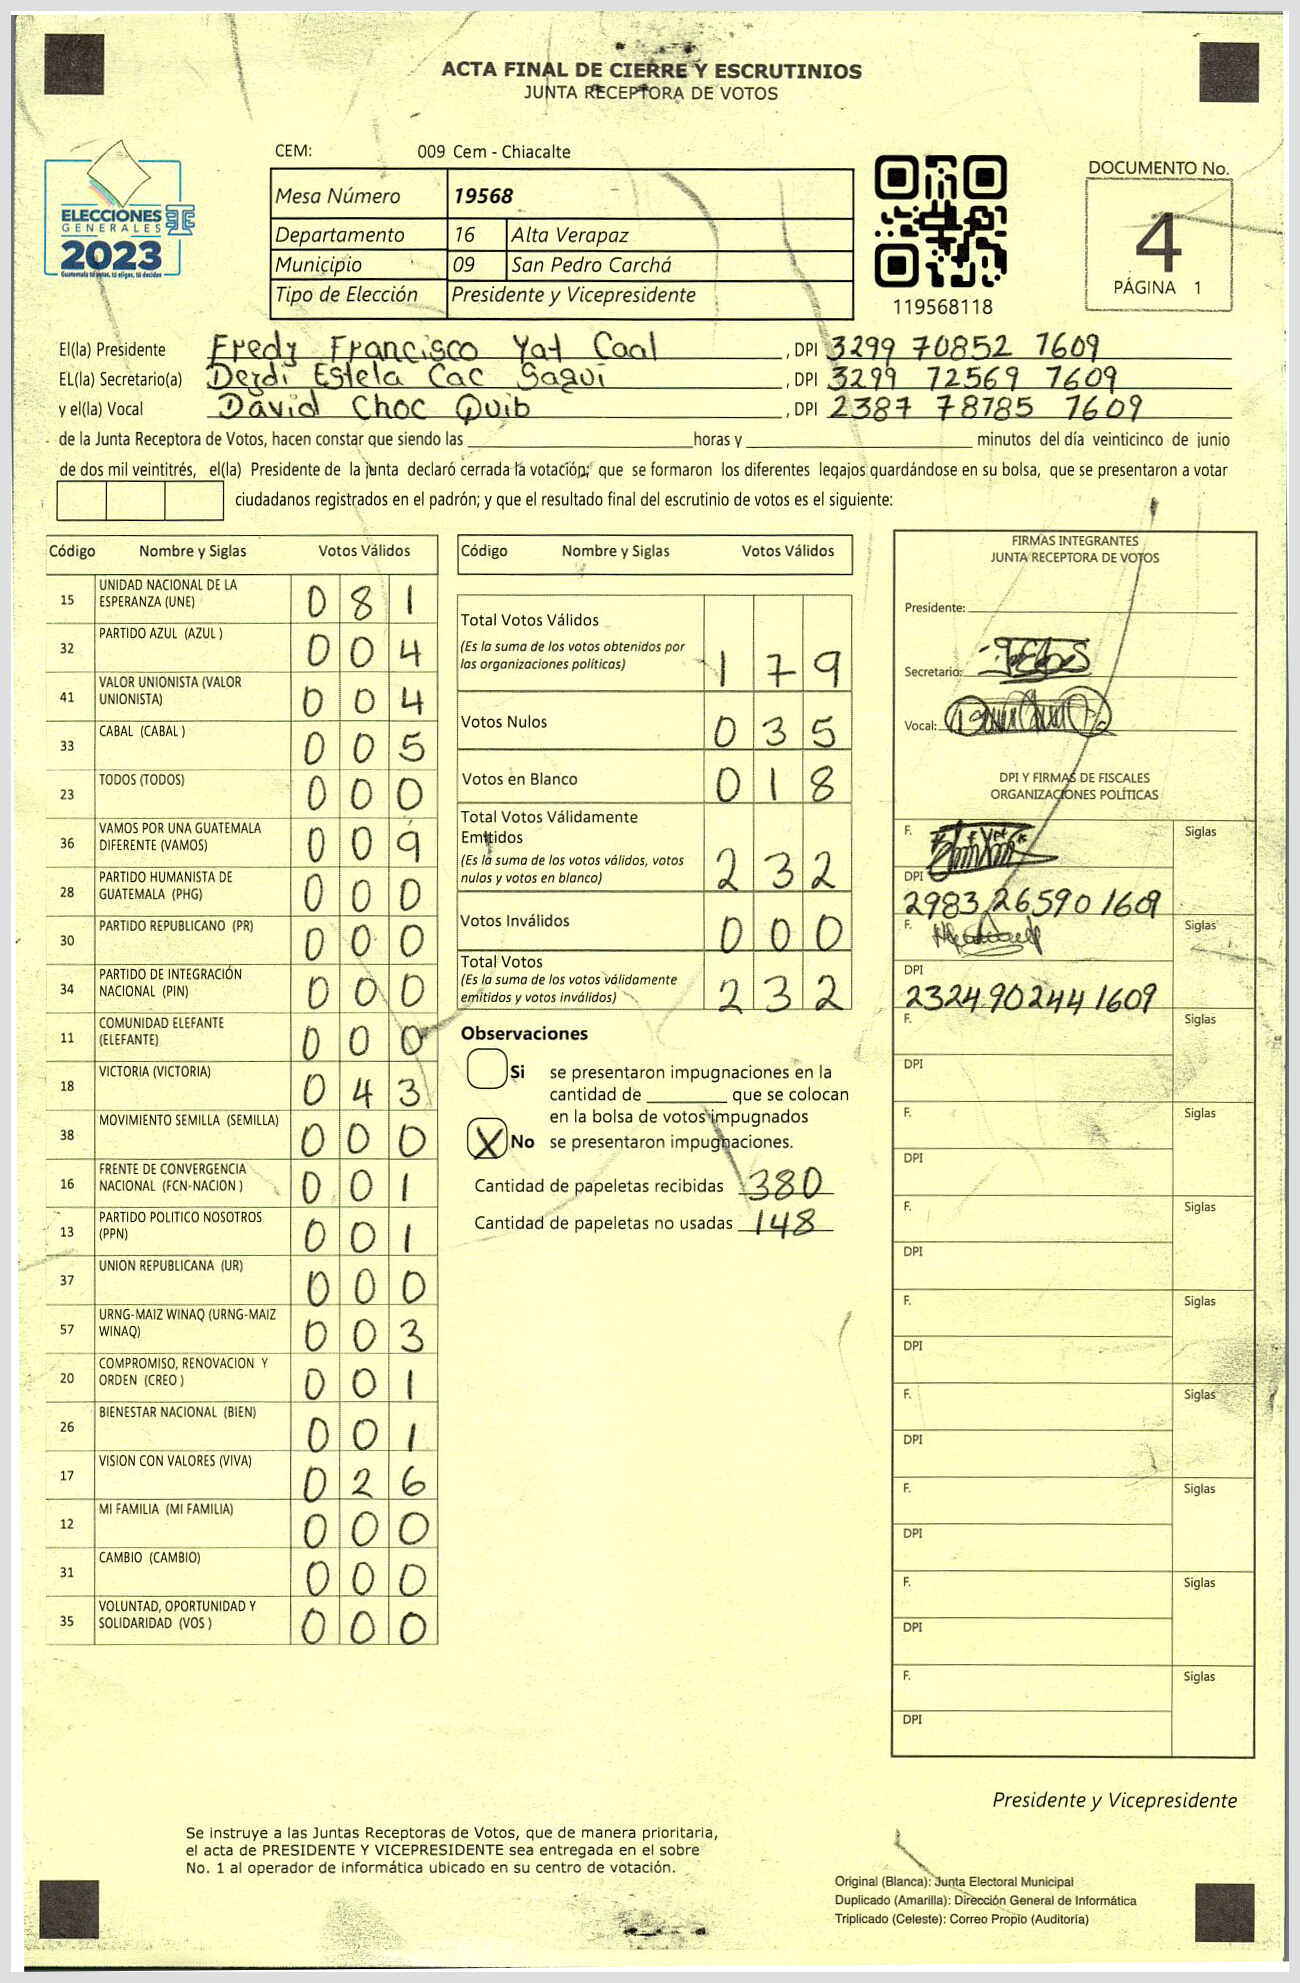 ACTA FINAL DE CIERRE Y ESCRUTINIOS
JUNTA RECEPTORA DE VOTOS
ELECCIONES
GENERALES
2023
Guatemala tú votas, tú eliges, tú decides
CEM: 009 Cem - Chiacalte
Mesa Número 19568
Departamento 16 Alta Verapaz
Municipio 09 San Pedro Carchá
Tipo de Elección Presidente y Vicepresidente
119568118
DOCUMENTO No.
4
PÁGINA 1
El(la) Presidente Fredy Francisco Yat Caal , DPI 3299 70852 1609
EL(la) Secretario(a) Deydi Estela Cac Saqui , DPI 3299 72569 1609
y el(la) Vocal David Choc Quib , DPI 2387 78785 1609
de la Junta Receptora de Votos, hacen constar que siendo las horas y minutos del día veinticinco de junio
de dos mil veintitrés, el(la) Presidente de la junta declaró cerrada la votación; que se formaron los diferentes legajos guardándose en su bolsa, que se presentaron a votar
ciudadanos registrados en el padrón; y que el resultado final del escrutinio de votos es el siguiente:
Código Nombre y Siglas Votos Válidos
15 UNIDAD NACIONAL DE LA ESPERANZA (UNE) 0 8 1
32 PARTIDO AZUL (AZUL ) 0 0 4
41 VALOR UNIONISTA (VALOR UNIONISTA) 0 0 4
33 CABAL (CABAL ) 0 0 5
23 TODOS (TODOS) 0 0 0
36 VAMOS POR UNA GUATEMALA DIFERENTE (VAMOS) 0 0 9
28 PARTIDO HUMANISTA DE GUATEMALA (PHG) 0 0 0
30 PARTIDO REPUBLICANO (PR) 0 0 0
34 PARTIDO DE INTEGRACIÓN NACIONAL (PIN) 0 0 0
11 COMUNIDAD ELEFANTE (ELEFANTE) 0 0 0
18 VICTORIA (VICTORIA) 0 4 3
38 MOVIMIENTO SEMILLA (SEMILLA) 0 0 0
16 FRENTE DE CONVERGENCIA NACIONAL (FCN-NACION ) 0 0 1
13 PARTIDO POLITICO NOSOTROS (PPN) 0 0 1
37 UNION REPUBLICANA (UR) 0 0 0
57 URNG-MAIZ WINAQ (URNG-MAIZ WINAQ) 0 0 3
20 COMPROMISO, RENOVACION Y ORDEN (CREO ) 0 0 1
26 BIENESTAR NACIONAL (BIEN) 0 0 1
17 VISION CON VALORES (VIVA) 0 2 6
12 MI FAMILIA (MI FAMILIA) 0 0 0
31 CAMBIO (CAMBIO) 0 0 0
35 VOLUNTAD, OPORTUNIDAD Y SOLIDARIDAD (VOS ) 0 0 0
Código Nombre y Siglas Votos Válidos
Total Votos Válidos
(Es la suma de los votos obtenidos por
las organizaciones políticas) 1 7 9
Votos Nulos 0 3 5
Votos en Blanco 0 1 8
Total Votos Válidamente
Emitidos
(Es la suma de los votos válidos, votos
nulos y votos en blanco) 2 3 2
Votos Inválidos 0 0 0
Total Votos
(Es la suma de los votos válidamente
emitidos y votos inválidos) 2 3 2
Observaciones
Si se presentaron impugnaciones en la
cantidad de que se colocan
en la bolsa de votos impugnados
X No se presentaron impugnaciones.
Cantidad de papeletas recibidas 380
Cantidad de papeletas no usadas 148
FIRMAS INTEGRANTES
JUNTA RECEPTORA DE VOTOS
Presidente:
Secretario:
Vocal:
DPI Y FIRMAS DE FISCALES
ORGANIZACIONES POLÍTICAS
F. Siglas
DPI
2983 26590 1609
F. Siglas
DPI
2324 90244 1609
F. Siglas
DPI
F. Siglas
DPI
F. Siglas
DPI
F. Siglas
DPI
F. Siglas
DPI
F. Siglas
DPI
F. Siglas
DPI
F. Siglas
DPI
Presidente y Vicepresidente
Se instruye a las Juntas Receptoras de Votos, que de manera prioritaria,
el acta de PRESIDENTE Y VICEPRESIDENTE sea entregada en el sobre
No. 1 al operador de informática ubicado en su centro de votación.
Original (Blanca): Junta Electoral Municipal
Duplicado (Amarilla): Dirección General de Informática
Triplicado (Celeste): Correo Propio (Auditoría)